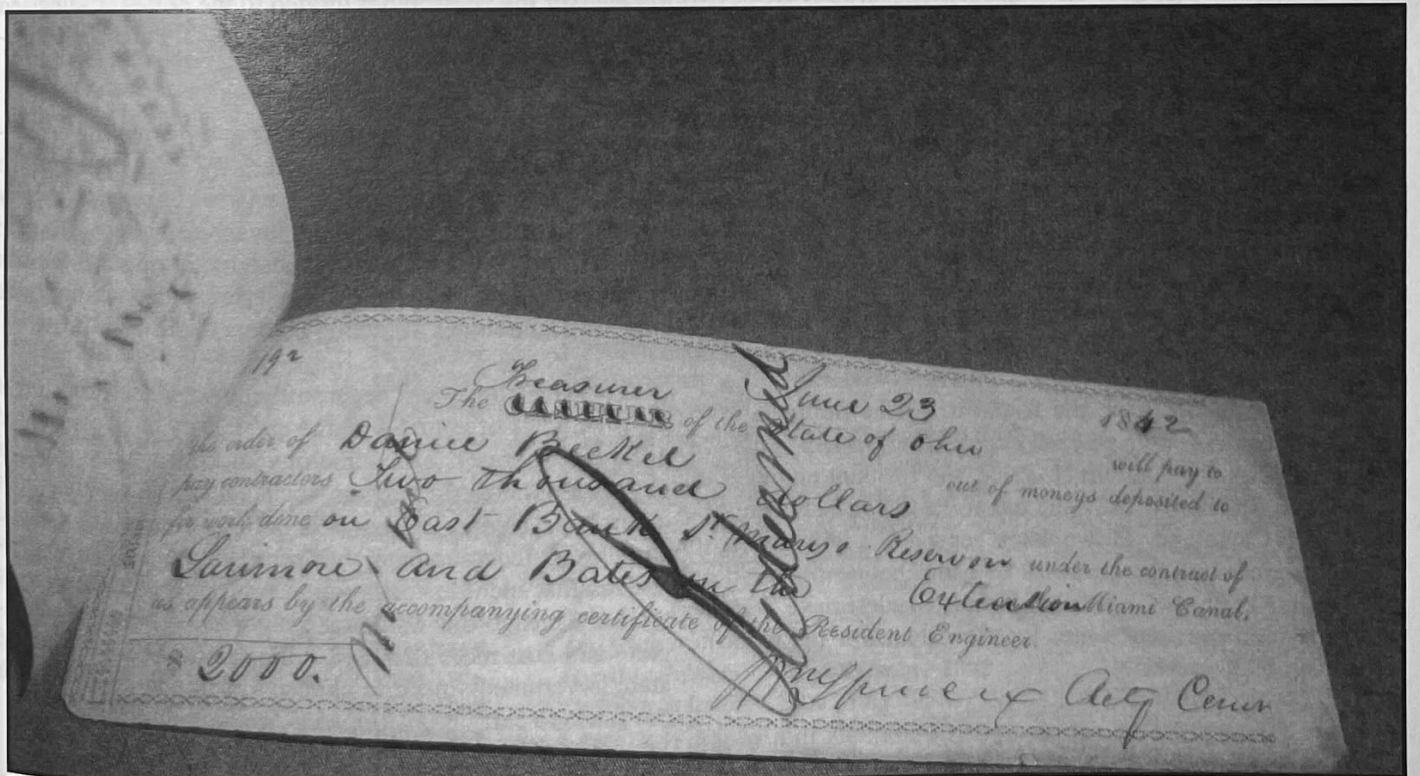 192
Treasurer June 23 1842
The CASHIER of the State of Ohio will pay to
the order of Daniel Beckel out of moneys deposited to
pay contractors Two thousand dollars
for work done on East Bank St Marys Reservoir under the contract of
Larimore and Bates on the Extention Miami Canal,
as appears by the accompanying certificate of the Resident Engineer.
$ 2000. Wm Spencer Actg Comr
Redeemed